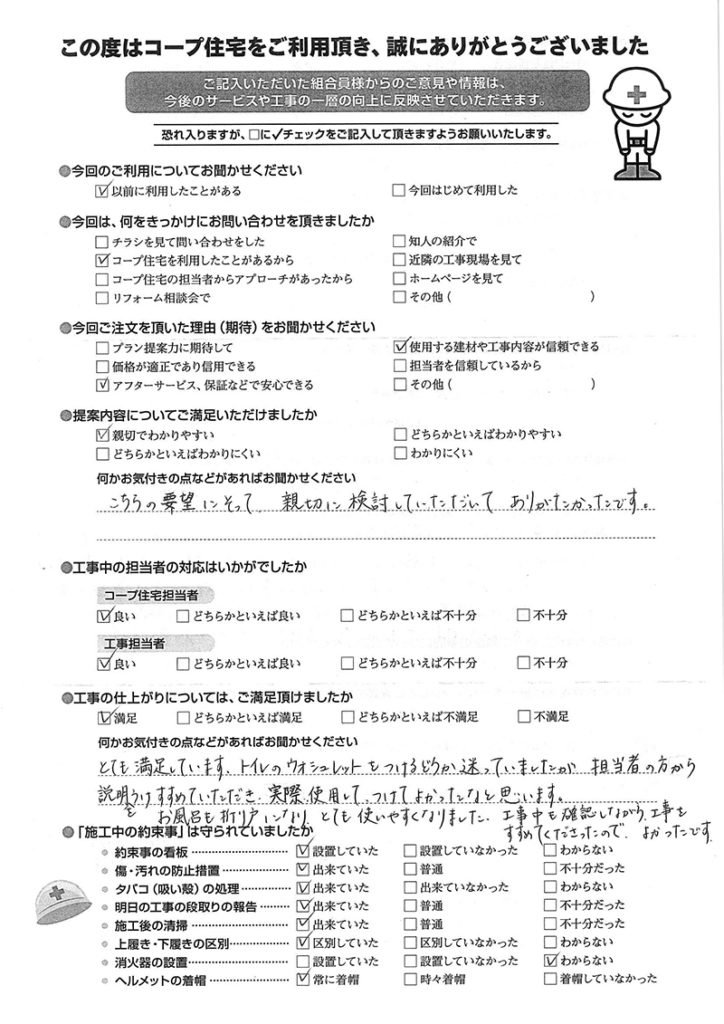 この度はコープ住宅をご利用頂き、誠にありがとうございました
ご記入いただいた組合員様からのご意見や情報は、
今後のサービスや工事の一層の向上に反映させていただきます。
恐れ入りますが、□に✓チェックをご記入して頂きますようお願いいたします。
●今回のご利用についてお聞かせください
☑以前に利用したことがある □今回はじめて利用した
●今回は、何をきっかけにお問い合わせを頂きましたか
□チラシを見て問い合わせをした □知人の紹介で
☑コープ住宅を利用したことがあるから □近隣の工事現場を見て
□コープ住宅の担当者からアプローチがあったから □ホームページを見て
□リフォーム相談会で □その他( )
●今回ご注文を頂いた理由(期待)をお聞かせください
□プラン提案力に期待して ☑使用する建材や工事内容が信頼できる
□価格が適正であり信用できる □担当者を信頼しているから
☑アフターサービス、保証などで安心できる □その他( )
●提案内容についてご満足いただけましたか
☑親切でわかりやすい □どちらかといえばわかりやすい
□どちらかといえばわかりにくい □わかりにくい
何かお気付きの点などがあればお聞かせください
こちらの要望にそって、親切に検討していただいて ありがたかったです。
●工事中の担当者の対応はいかがでしたか
コープ住宅担当者
☑良い □どちらかといえば良い □どちらかといえば不十分 □不十分
工事担当者
☑良い □どちらかといえば良い □どちらかといえば不十分 □不十分
●工事の仕上がりについては、ご満足頂けましたか
☑満足 □どちらかといえば満足 □どちらかといえば不満足 □不満足
何かお気付きの点などがあればお聞かせください
とても満足しています、トイレのウォシュレットをつけるどうか迷っていましたが 担当者の方から
説明うけすすめていただき、実際、使用して、つけてよかったなと思います。
を お風呂も折り戸になり、とても使いやすくなりました、工事中も確認しながら、工事を
すすめてくださったので、よかったです。
●「施工中の約束事」は守られていましたか
約束事の看板 ☑設置していた □設置していなかった □わからない
傷・汚れの防止措置 ☑出来ていた □普通 □不十分だった
タバコ(吸い殻)の処理 ☑出来ていた □出来ていなかった □わからない
明日の工事の段取りの報告 ☑出来ていた □普通 □不十分だった
施工後の清掃 ☑出来ていた □普通 □不十分だった
上履き・下履きの区別 ☑区別していた □区別していなかった □わからない
消火器の設置 □設置していた □設置していなかった ☑わからない
ヘルメットの着帽 ☑常に着帽 □時々着帽 □着帽していなかった